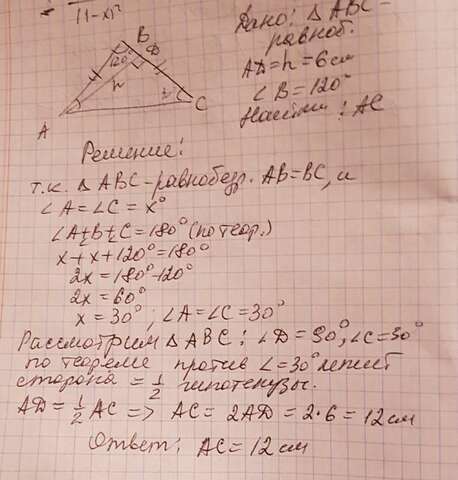 (1-x)²
Дано: △ABC-
равноб.
AD = h = 6 см
∠B = 120°
Найти: AC
B
D
120°
h
A
C
Решение:
т.к. △ABC - равнобедр. AB=BC, и
∠A = ∠C = x°
∠A+∠B+∠C = 180° (по теор.)
x + x + 120° = 180°
2x = 180° - 120°
2x = 60°
x = 30° ; ∠A = ∠C = 30°
Рассмотрим △ABC: ∠D = 90°, ∠C = 30°
по теореме против ∠ = 30° лежит
сторона = 1/2 гипотенузы.
AD = 1/2 AC => AC = 2AD = 2·6 = 12 см
Ответ: AC = 12 см